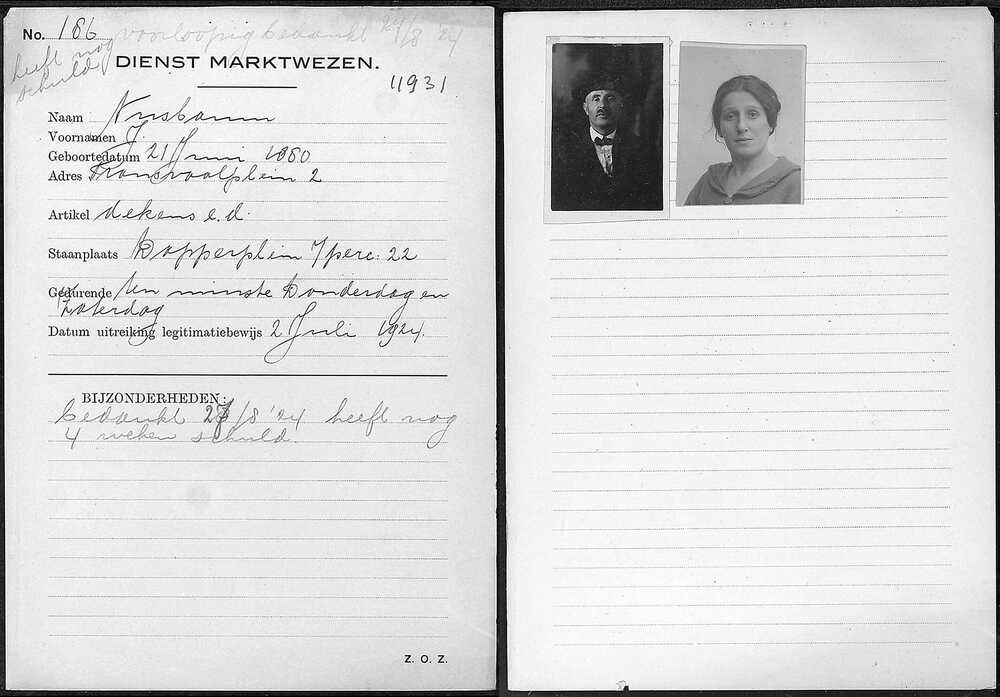 No. 186 voorloopig bedankt 24/8 '24
heeft nog
schuld
DIENST MARKTWEZEN.
11931
Naam Nusbaum
Voornamen J.
Geboortedatum 21 Juni 1880
Adres Transvaalplein 2
Artikel dekens e.d.
Staanplaats Dapperplein / perc: 22
Gedurende Ten minste Donderdag en
Zaterdag
Datum uitreiking legitimatiebewijs 2 Juli 1924.
BIJZONDERHEDEN:
bedankt 27/8 '24 heeft nog
4 weken schuld.
Z. O. Z.